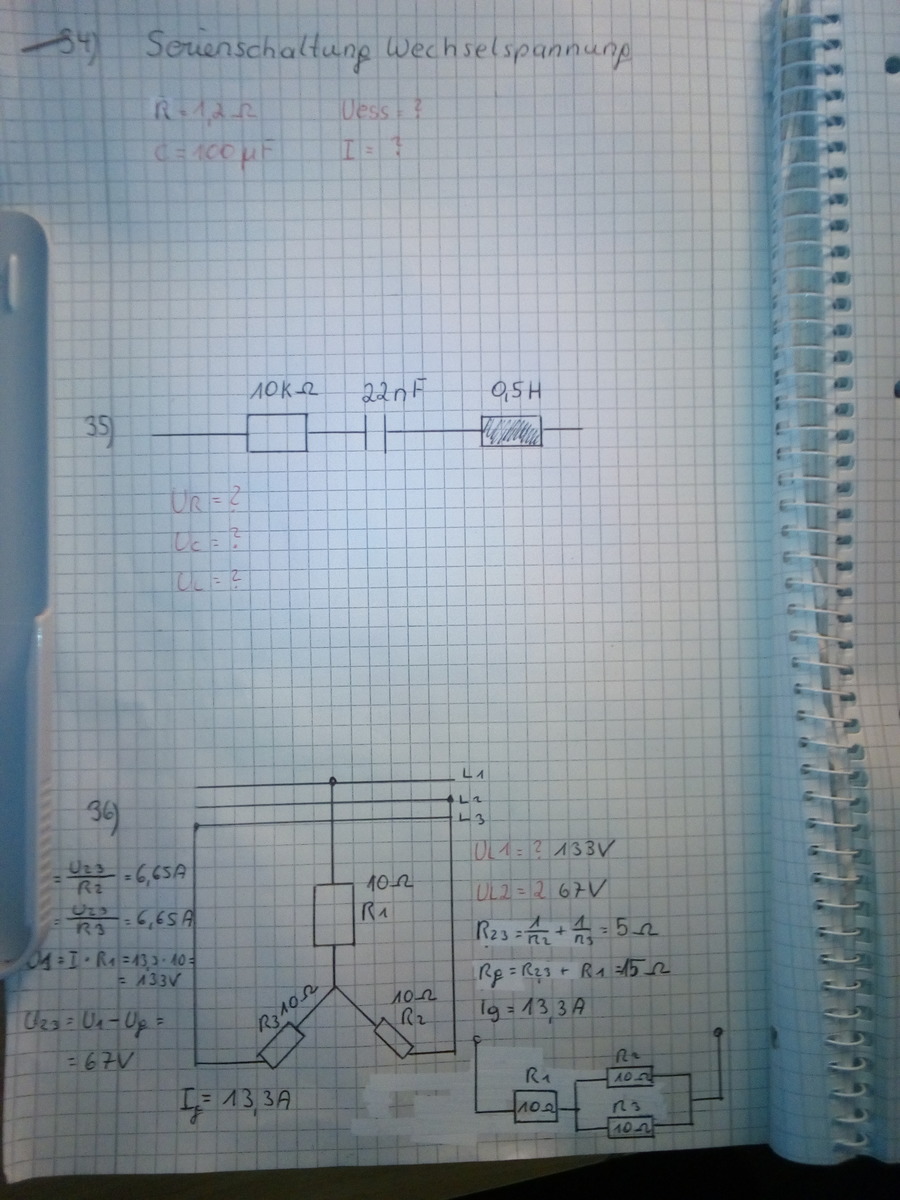 34) Serienschaltung Wechselspannung
R = 1,2 Ω Uess = ?
C = 100 µF I = ?
10kΩ 22nF 0,5H
35)
UR = ?
Uc = ?
UL = ?
36)
L1
L2
L3
= U23/R2 = 6,65A
= U23/R3 = 6,65A
U1 = I · R1 = 13,3 · 10 =
= 133V
U23 = U1 - Ug =
= 67V
10Ω
R1
10Ω
R3
10Ω
R2
Ig = 13,3A
UL1 = ? 133V
UL2 = ? 67V
R23 = 1/R2 + 1/R3 = 5Ω
Rg = R23 + R1 = 15Ω
Ig = 13,3A
R1
10Ω
R2
10Ω
R3
10Ω